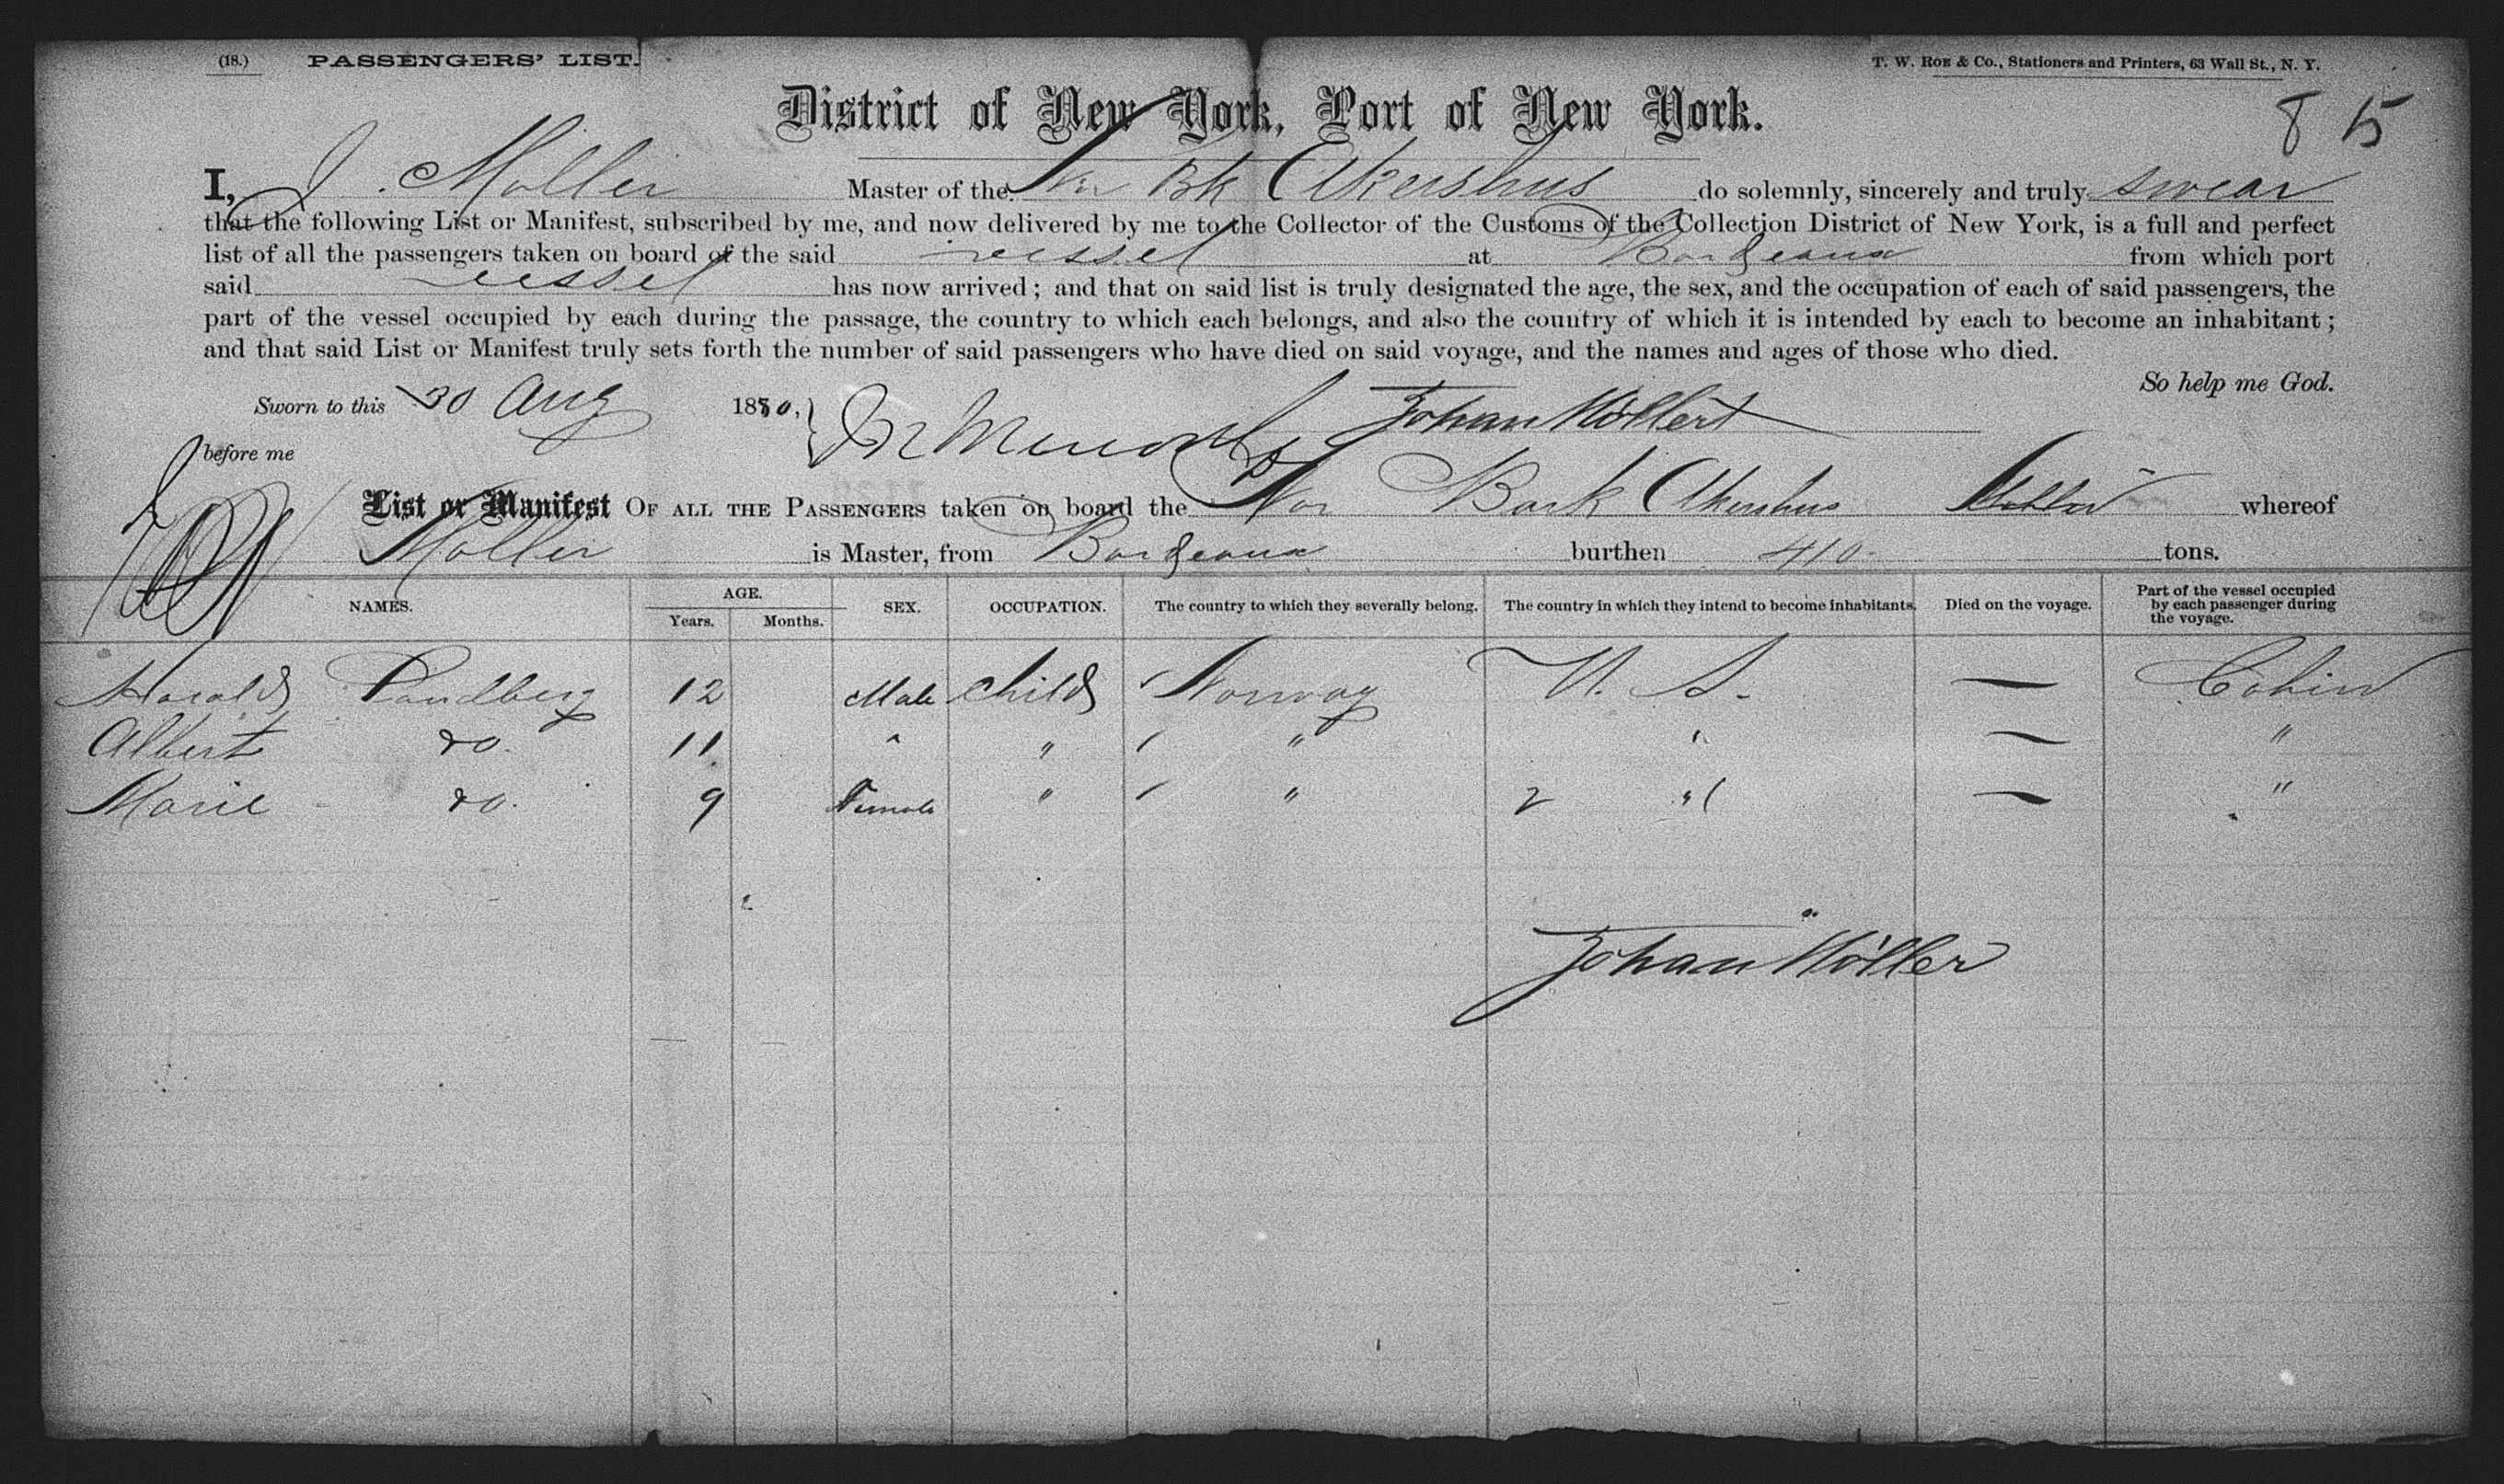 (18.) PASSENGERS' LIST. T. W. ROE & Co., Stationers and Printers, 63 Wall St., N. Y.
District of New York, Port of New York.
8 15
I, J. Moller Master of the Nor Bk Akershus do solemnly, sincerely and truly swear
that the following List or Manifest, subscribed by me, and now delivered by me to the Collector of the Customs of the Collection District of New York, is a full and perfect
list of all the passengers taken on board of the said vessel at Bordeaux from which port
said vessel has now arrived; and that on said list is truly designated the age, the sex, and the occupation of each of said passengers, the
part of the vessel occupied by each during the passage, the country to which each belongs, and also the country of which it is intended by each to become an inhabitant;
and that said List or Manifest truly sets forth the number of said passengers who have died on said voyage, and the names and ages of those who died.
So help me God.
Sworn to this 30 Aug 1880, Johan Möller
before me
List or Manifest OF ALL THE PASSENGERS taken on board the Nor Bark Akershus whereof
Moller is Master, from Bordeaux burthen 410 tons.
NAMES. AGE. Years. Months. SEX. OCCUPATION. The country to which they severally belong. The country in which they intend to become inhabitants. Died on the voyage. Part of the vessel occupied by each passenger during the voyage.
Harald 12 Male Child Norway U. S. — Cabin
Albert do. 11 " " " " — "
Marie do. 9 Female " " " — "
Johan Möller